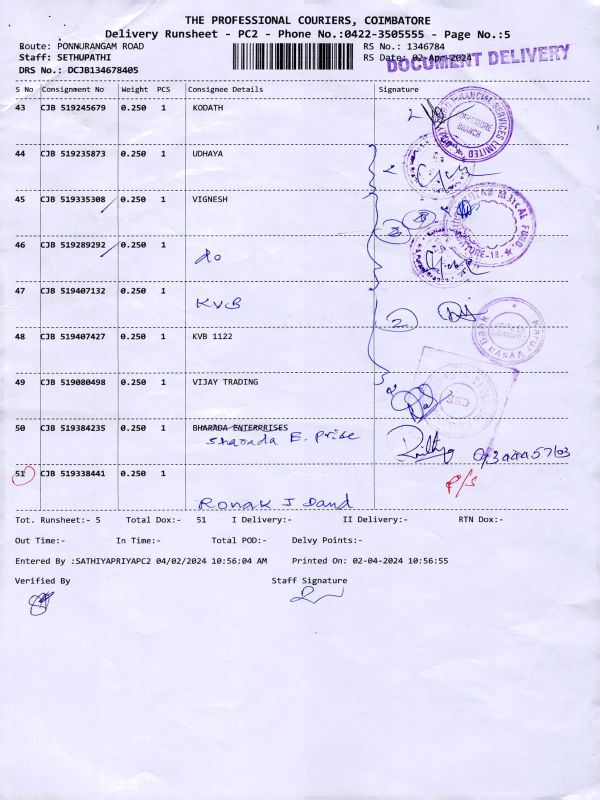 THE PROFESSIONAL COURIERS, COIMBATORE
Delivery Runsheet - PC2 - Phone No.:0422-3505555 - Page No.:5
Route: PONNURANGAM ROAD RS No.: 1346784
Staff: SETHUPATHI RS Date: 02-Apr-2024
DOCUMENT DELIVERY
DRS No.: DCJB134678405
S No Consignment No Weight PCS Consignee Details Signature
43 CJB 519245679 0.250 1 KODATH
44 CJB 519235873 0.250 1 UDHAYA
45 CJB 519335308 0.250 1 VIGNESH
46 CJB 519289292 0.250 1
do
47 CJB 519407132 0.250 1
KVB
2
48 CJB 519407427 0.250 1 KVB 1122
49 CJB 519080498 0.250 1 VIJAY TRADING
50 CJB 519384235 0.250 1 BHARADA ENTERPRISES
Sharada E. Prise
51 CJB 519338441 0.250 1
P/S
Ronak J Dand
Tot. Runsheet:- 5 Total Dox:- 51 I Delivery:- II Delivery:- RTN Dox:-
Out Time:- In Time:- Total POD:- Delvy Points:-
Entered By :SATHIYAPRIYAPC2 04/02/2024 10:56:04 AM Printed On: 02-04-2024 10:56:55
Verified By Staff Signature